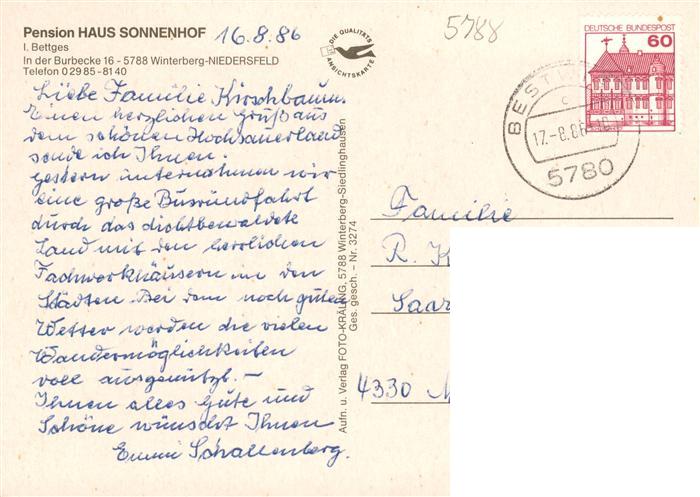 Pension HAUS SONNENHOF
I. Bettges
In der Burbecke 16 - 5788 Winterberg-NIEDERSFELD
Telefon 0 29 85 - 81 40
16.8.86
DIE QUALITÄTS
ANSICHTSKARTE
5788
DEUTSCHE BUNDESPOST
60
BESTW
c
17.-8.86
5780
Liebe Familie Kirschbaum.
Einen herzlichen Gruß aus
dem schönen Hochsauerland
sende ich Ihnen.
Gestern unternahmen wir
eine große Busrundfahrt
durch das dichtbewaldete
Land mit den herrlichen
Fachwerkhäusern in den
Städten. Bei dem noch guten
Wetter werden die vielen
Wandermöglichkeiten
voll ausgenützt. -
Ihnen alles Gute und
Schöne wünscht Ihnen
Emmi Schallenberg.
Aufn. u. Verlag FOTO-KRÄLING, 5788 Winterberg-Siedlinghausen
Ges. gesch. – Nr. 3274
Familie
R. K
Saar
4330 M